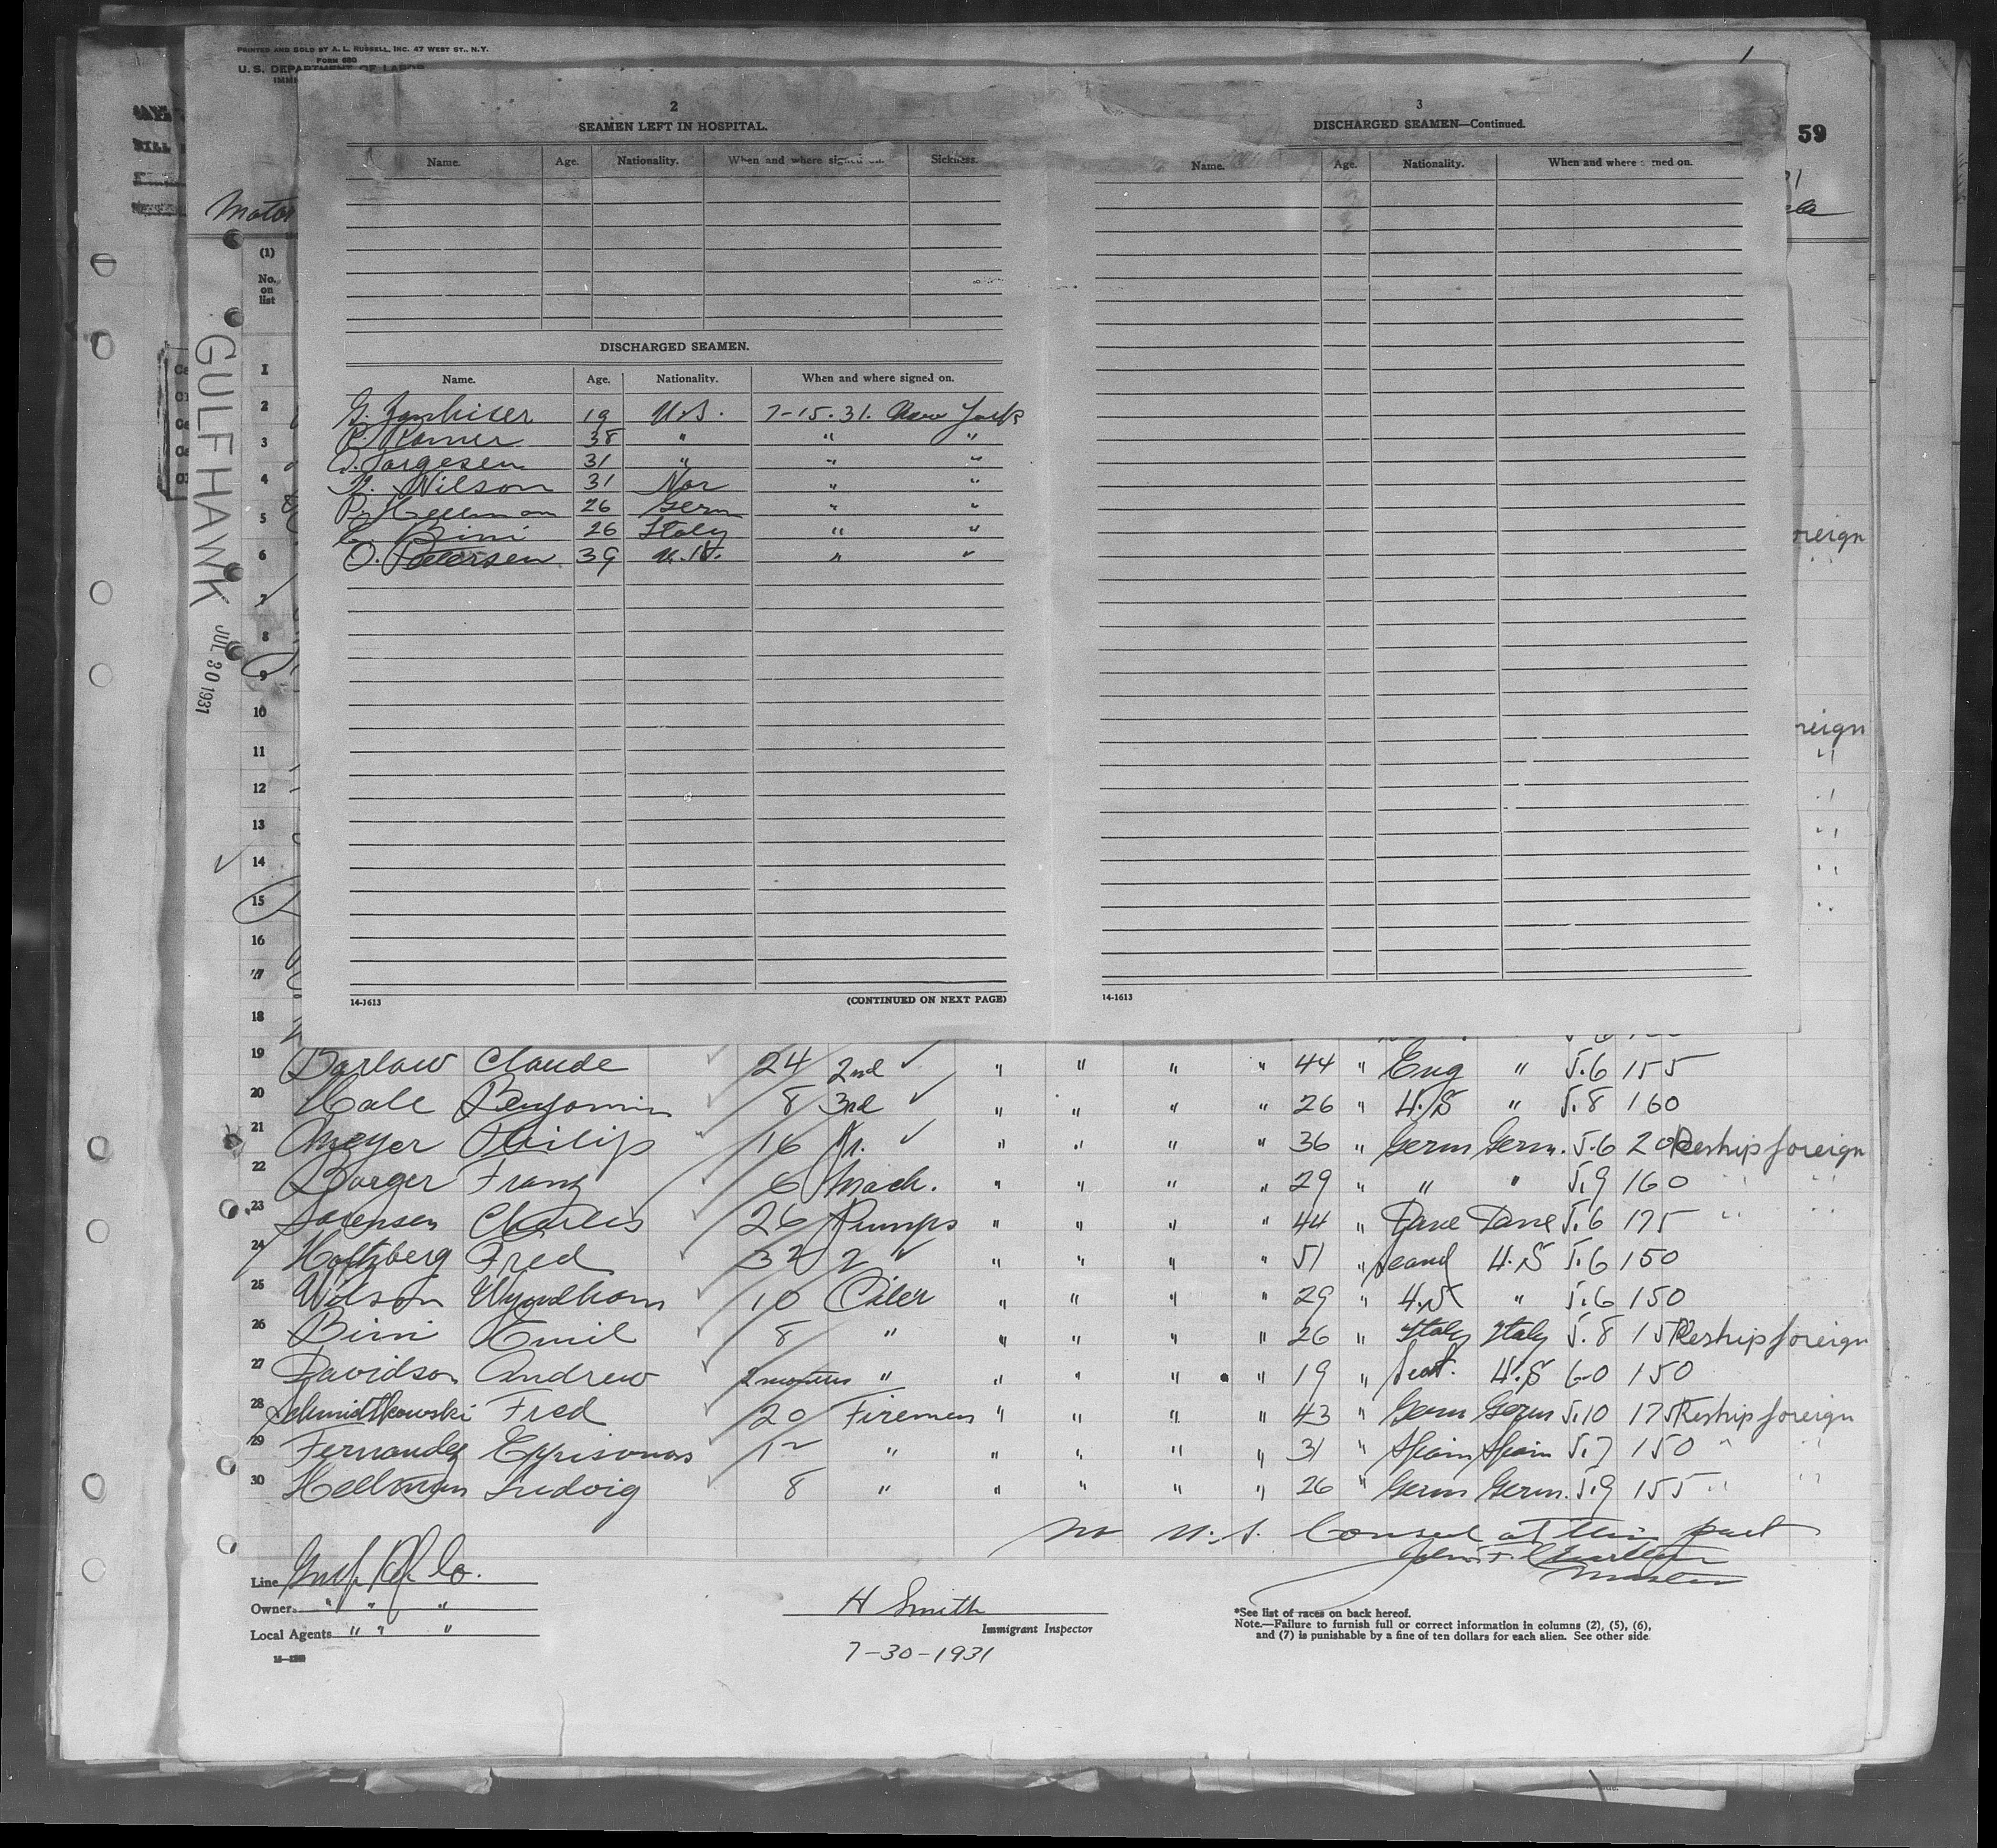 PRINTED AND SOLD BY A. L. RUSSELL, INC. 47 WEST ST., N.Y.
FORM 680
U. S. DEPARTMENT OF LABOR
59
Motor
(1)
No. on list
GULFHAWK
JUL 30 1931
2
SEAMEN LEFT IN HOSPITAL.
Name. Age. Nationality. When and where signed on. Sickness.
DISCHARGED SEAMEN.
Name. Age. Nationality. When and where signed on.
G. 19 U.S. 7-15.31. New York
R. Ramer 38 " " "
Torgesen 31 " " "
Wilson 31 Nor " "
Hellman 26 Germ " "
E. Bini 26 Italy " "
O. Petersen 39 U.S. " "
14-1613 (CONTINUED ON NEXT PAGE)
3
DISCHARGED SEAMEN—Continued.
Name. Age. Nationality. When and where signed on.
14-1613
1
2
3
4
5
6
7
8
9
10
11
12
13
14
15
16
17
18
reign
reign
19 Barlow Claude 24 2nd " " " " 44 " Eng " 5.6 155
20 Hale Benjamin 8 3rd " " " " 26 " U.S " 5.8 160
21 Meyer Philip 16 Jr. " " " " 36 " Germ Germ. 5.6 200 Reship foreign
22 Burger Franz 6 Mach. " " " " 29 " " " 5.9 160 " "
23 Sorensen Charles 26 Pumps " " " " 44 " Dane Dane 5.6 175 " "
24 Holtzberg Fred 32 2 " " " " " 51 " Scand U.S 5.6 150
25 Wilson Wyndham 10 Oiler " " " " 29 " U.S " 5.6 150
26 Bini Emil 8 " " " " " 26 " Italy Italy 5.8 Reship foreign
27 Davidson Andrew 2 months " " " " " 19 " Scot. U.S 6-0 150
28 Schmidtkowski Fred 20 Firemen " " " " 43 " Germ Germ 5.10 175 Reship foreign
29 Fernandez 12 " " " " " 31 " Spain Spain 5.7 150 " "
30 Hellman Ludvig 8 " " " " " 26 " Germ Germ. 5.9 155 " "
No U.S. Consul at this port
John F.
Master
Line Gulf Rf. Co.
Owner " " "
Local Agents " " "
H Smith
Immigrant Inspector
7-30-1931
*See list of races on back hereof.
Note.—Failure to furnish full or correct information in columns (2), (5), (6),
and (7) is punishable by a fine of ten dollars for each alien. See other side